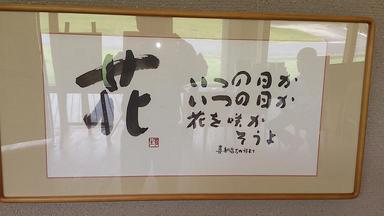 花
いつの日か
いつの日か
花を咲か
そうよ